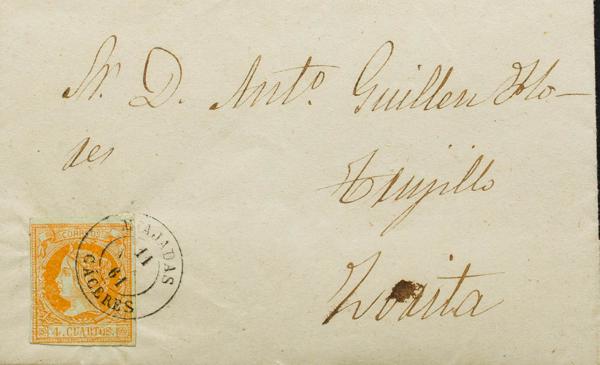 Sr. D. Anto. Guillen Flo-
res
Trujillo
Zorita
CORREOS
4 CUARTOS.
AJADAS
11
61
CACERES